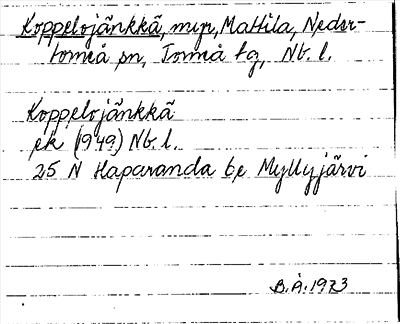 Koppelojänkkä, myr, Mattila, Neder-
torneå sn, Torneå tg, Nb. l.
Koppelojänkkä
ek (1949) Nb. l.
25 N Haparanda be Myllyjärvi
B.Å. 1973